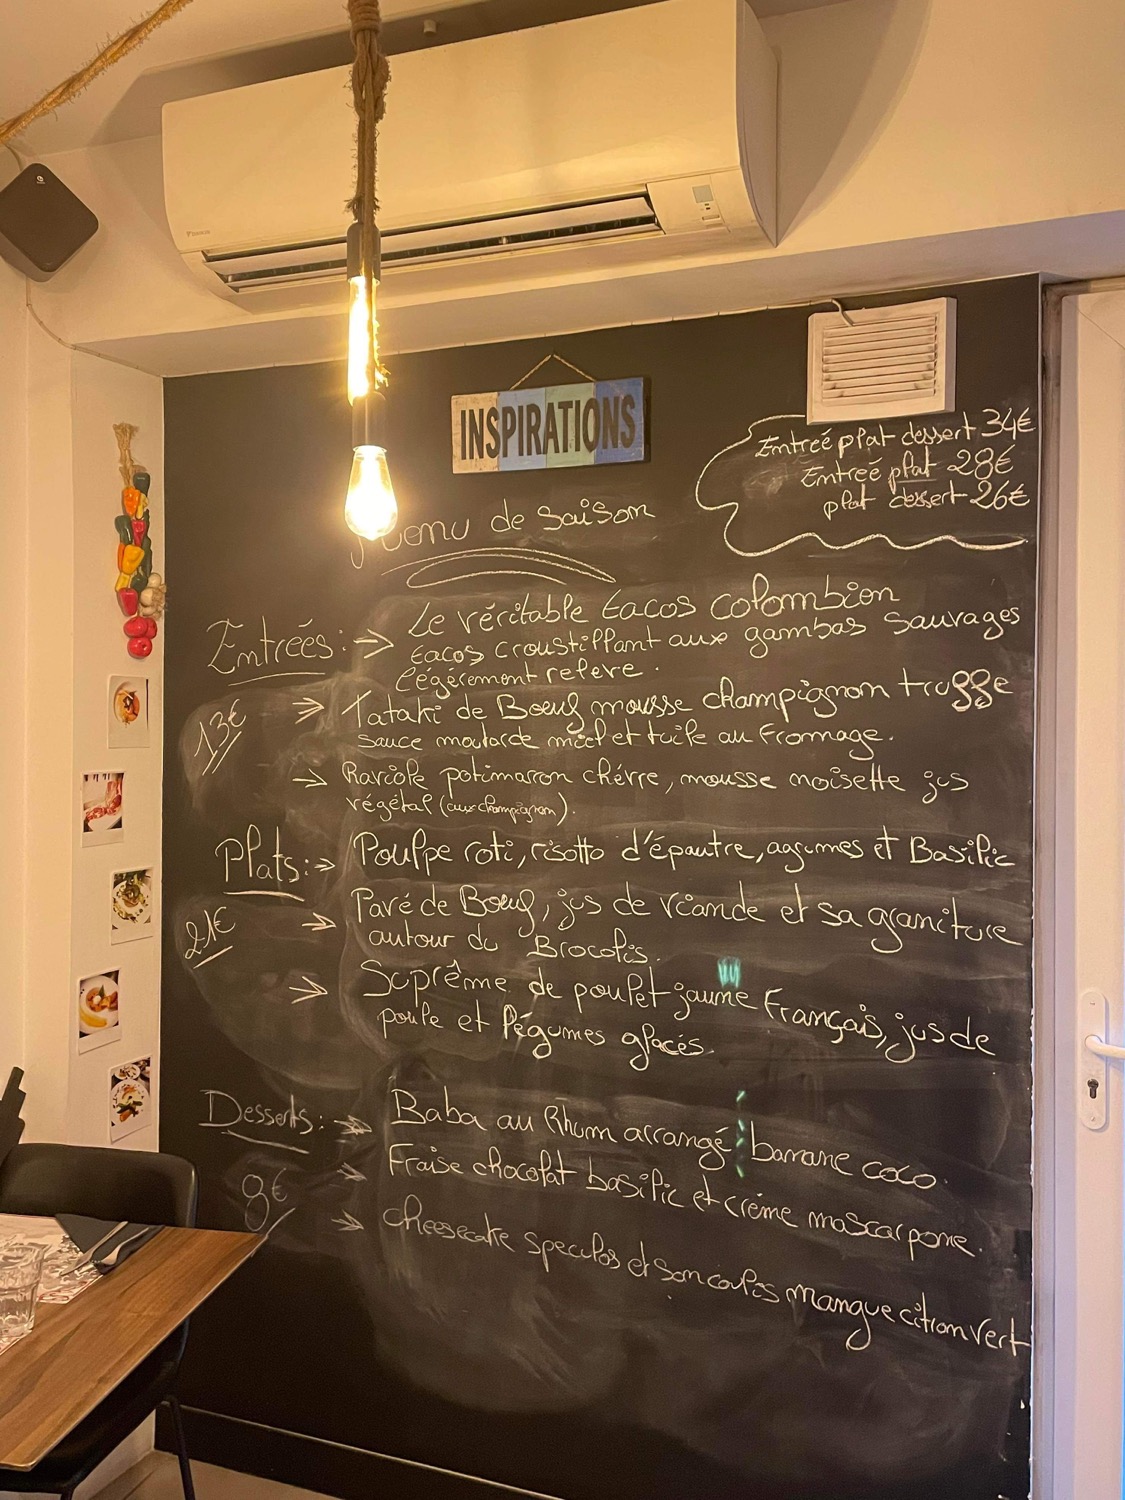 DAIKIN
INSPIRATIONS
Entreé plat dessert 34€
Entreé plat 28€
plat dessert 26€
Menu de saison
Entreés : Le véritable tacos colombien
tacos croustillant aux gambas sauvages
légérement releve.
13€ Tataki de Bœuf mousse champignon truffe
sauce moutarde miel et tuile au fromage.
Raviole potimarron chévre, mousse noisette jus
végétal (aux champignon).
Plats : Poulpe roti, risotto d'épautre, agrumes et Basilic
21€ Pavé de Bœuf, jus de viande et sa graniture
autour du Brocolis.
Suprême de poulet jaune Français, jus de
poule et légumes glacés.
Desserts : Baba au Rhum arrangé banane coco.
Fraise chocolat basilic et créme mascarpone.
8€ cheesecake speculos et son coulis mangue citron vert